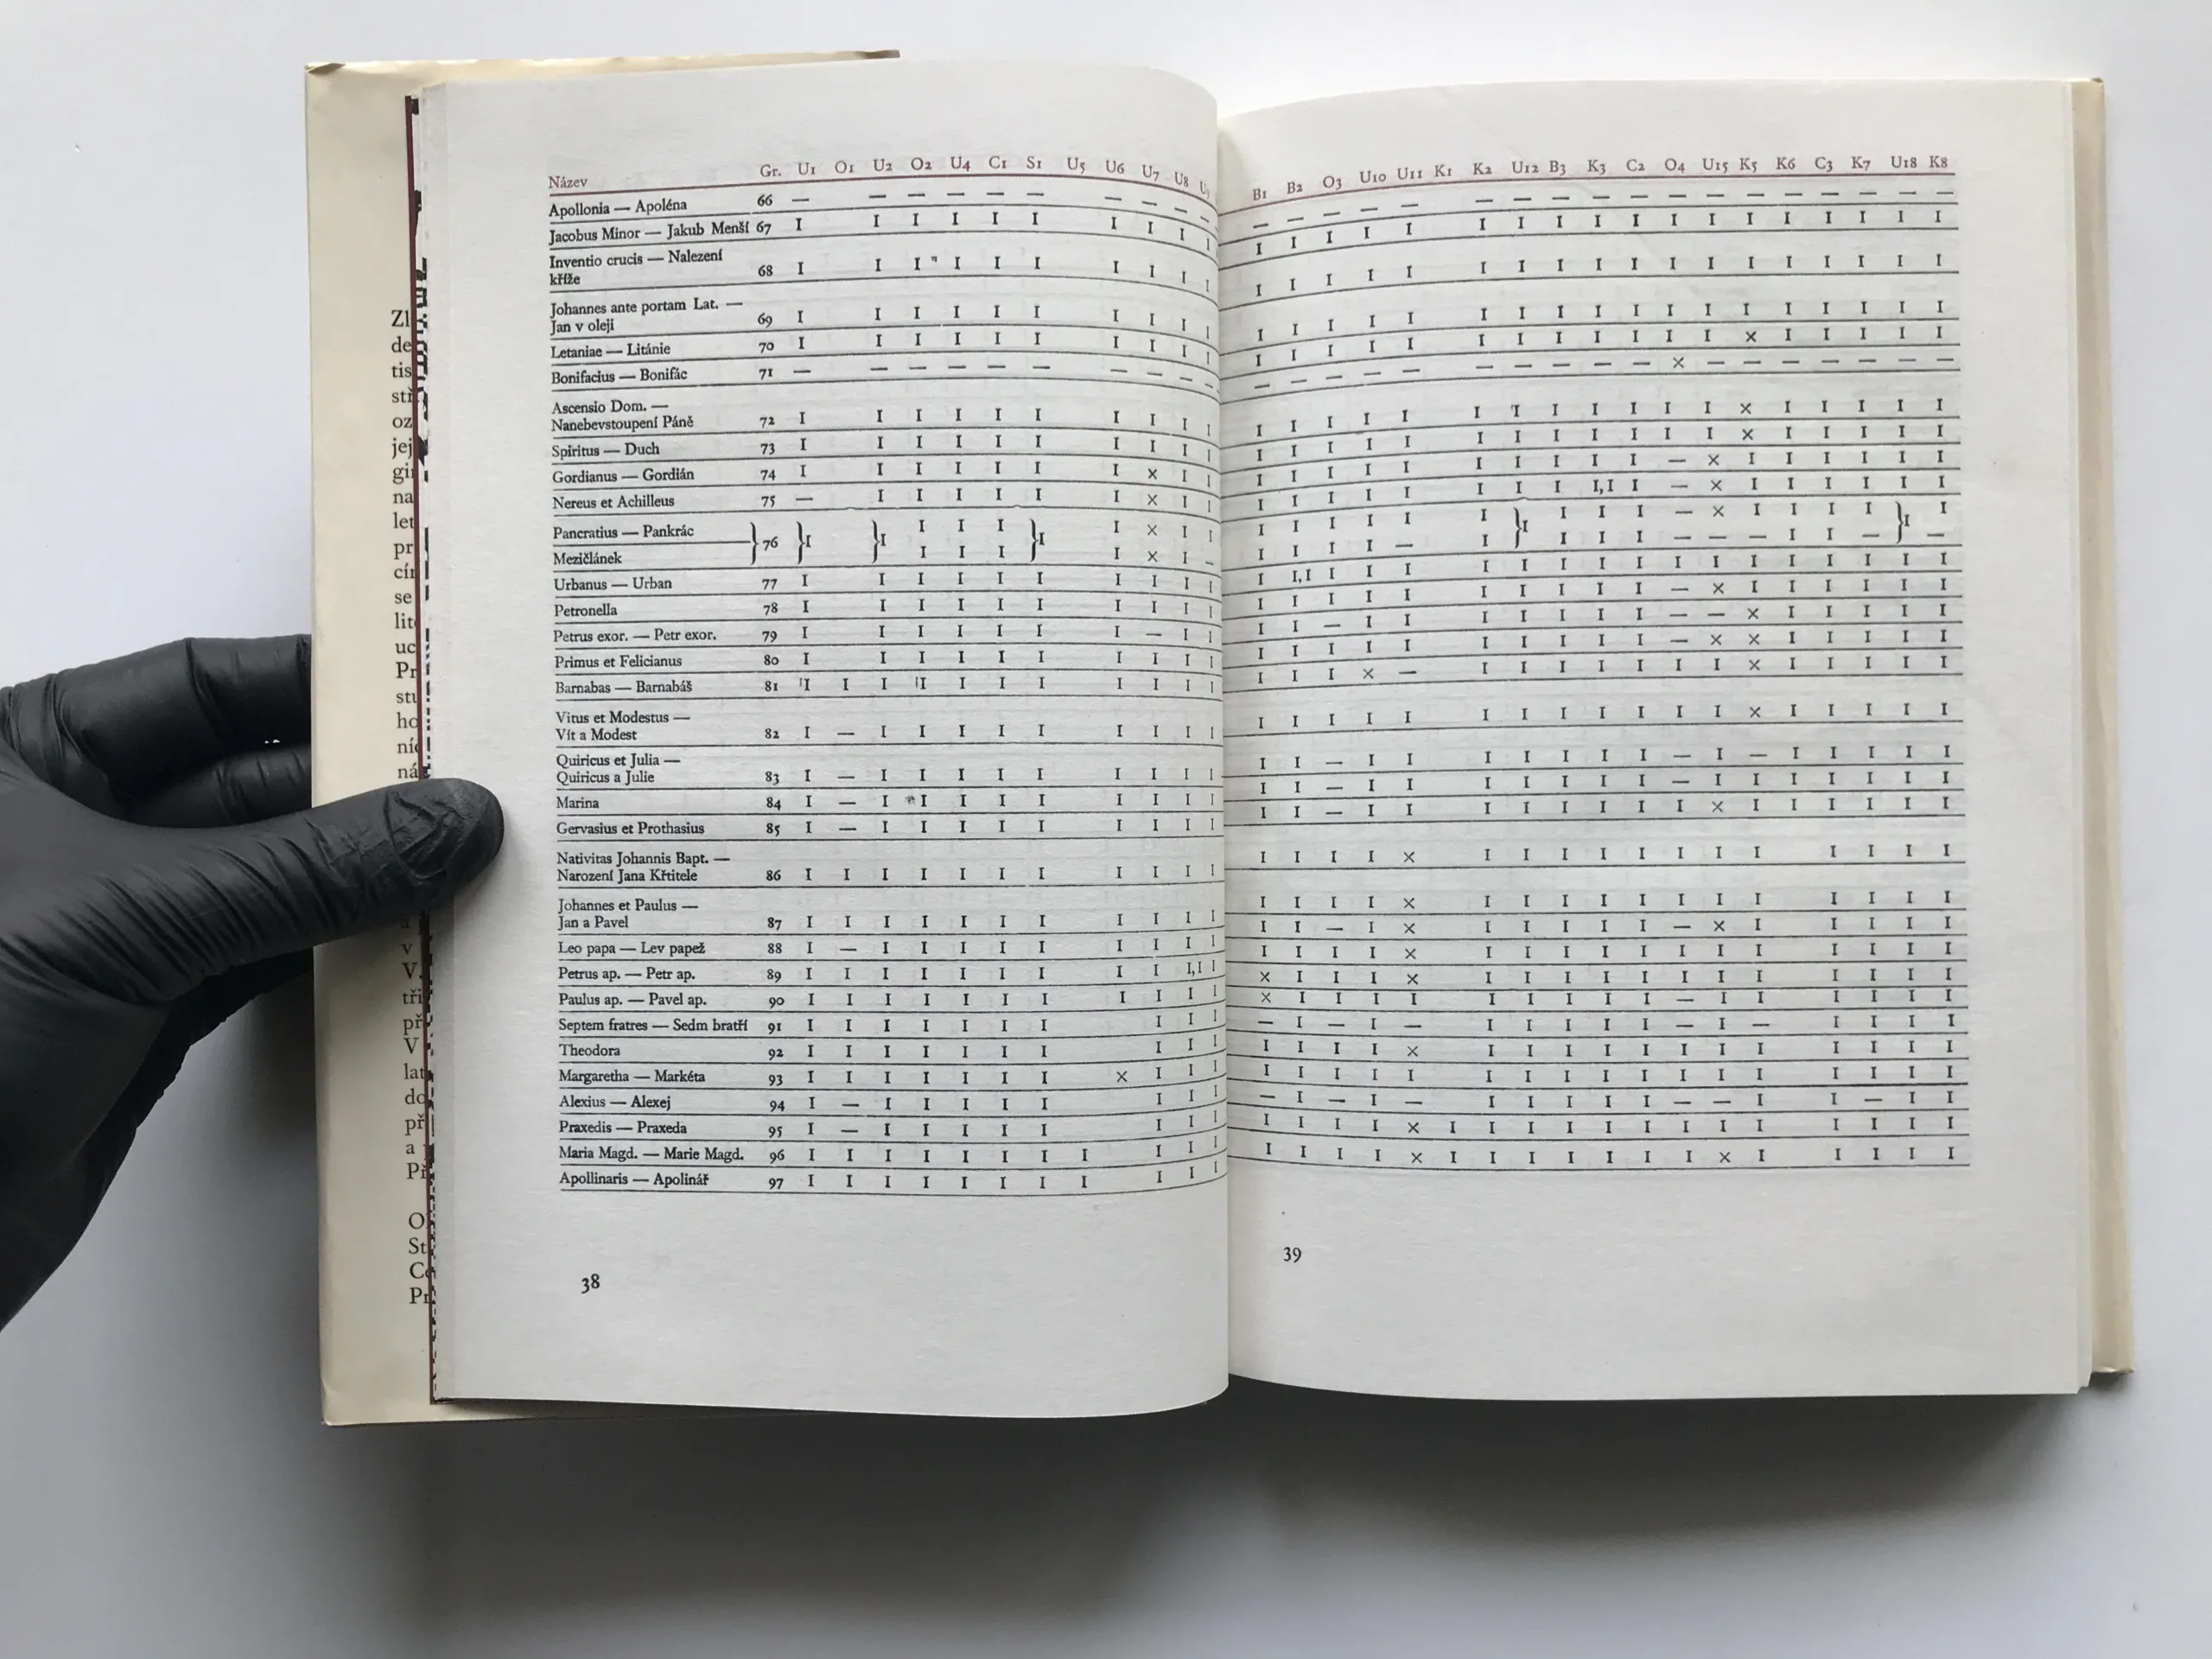 Název Gr. U1 O1 U2 O2 U4 C1 S1 U5 U6 U7 U8
Apollonia — Apoléna 66 — — — — — — — — — —
Jacobus Minor — Jakub Menší 67 I I I I I I I I I I
Inventio crucis — Nalezení
kříže 68 I I I I I I I I I I
Johannes ante portam Lat. —
Jan v oleji 69 I I I I I I I I I I
Letaniae — Litánie 70 I I I I I I I I I I
Bonifacius — Bonifác 71 — — — — — — — — — —
Ascensio Dom. —
Nanebevstoupení Páně 72 I I I I I I I I I I
Spiritus — Duch 73 I I I I I I I I I I
Gordianus — Gordián 74 I I I I I I I × I I
Nereus et Achilleus 75 — I I I I I I × I I
Pancratius — Pankrác } 76 } I } I I I I } I I × I I
Mezičlánek I I I I × I —
Urbanus — Urban 77 I I I I I I I I I I
Petronella 78 I I I I I I I I I I
Petrus exor. — Petr exor. 79 I I I I I I I — I I
Primus et Felicianus 80 I I I I I I I I I I
Barnabas — Barnabáš 81 I I I I I I I I I I I
Vitus et Modestus —
Vít a Modest 82 I — I I I I I I I I I
Quiricus et Julia —
Quiricus a Julie 83 I — I I I I I I I I I
Marina 84 I — I I I I I I I I I
Gervasius et Prothasius 85 I — I I I I I I I I I
Nativitas Johannis Bapt. —
Narození Jana Křtitele 86 I I I I I I I I I I I
Johannes et Paulus —
Jan a Pavel 87 I I I I I I I I I I I
Leo papa — Lev papež 88 I — I I I I I I I I I
Petrus ap. — Petr ap. 89 I I I I I I I I I I,I I
Paulus ap. — Pavel ap. 90 I I I I I I I I I I I
Septem fratres — Sedm bratří 91 I I I I I I I I I I
Theodora 92 I I I I I I I I I I
Margaretha — Markéta 93 I I I I I I I × I I I
Alexius — Alexej 94 I — I I I I I I I I
Praxedis — Praxeda 95 I — I I I I I I I I
Maria Magd. — Marie Magd. 96 I I I I I I I I I I I
Apollinaris — Apolinář 97 I I I I I I I I I I I
38
B1 B2 O3 U10 U11 K1 K2 U12 B3 K3 C2 O4 U15 K5 K6 C3 K7 U18 K8
— — — — — — — — — — — — — — — — — —
I I I I I I I I I I I I I I I I I I
I I I I I I I I I I I I I I I I I I
I I I I I I I I I I I I I I I I I I
I I I I I I I I I I I I × I I I I I
— — — — — — — — — — × — — — — — — —
I I I I I I I I I I I I × I I I I I
I I I I I I I I I I I I × I I I I I
I I I I I I I I I I — × I I I I I I
I I I I I I I I I,I I — × I I I I I I
I I I I I I } I I I I — × I I I I } I I
I I I I — I I I I — — — I I — —
I I,I I I I I I I I I I I I I I I I I
I I I I I I I I I I — × I I I I I I
I I — I I I I I I I — — × I I I I I
I I I I I I I I I I — × × I I I I I
I I I × — I I I I I I I × I I I I I
I I I I I I I I I I I I × I I I I I
I I — I I I I I I I — I — I I I I I
I I — I I I I I I I — I I I I I I I
I I — I I I I I I I I × I I I I I I
I I I I × I I I I I I I I I I I I
I I I I × I I I I I I I I I I I I
I I — I × I I I I I — × I I I I I
I I I I × I I I I I I I I I I I I
× I I I × I I I I I I I I I I I I
× I I I I I I I I I — I I I I I I
— I — I — I I I I I — I — I I I I
I I I I × I I I I I I I I I I I I
I I I I I I I I I I I I I I I I I
— I — I — I I I I I — — I I — I I
I I I I × I I I I I I I I I I I I I
I I I I × I I I I I I I × I I I I I
39